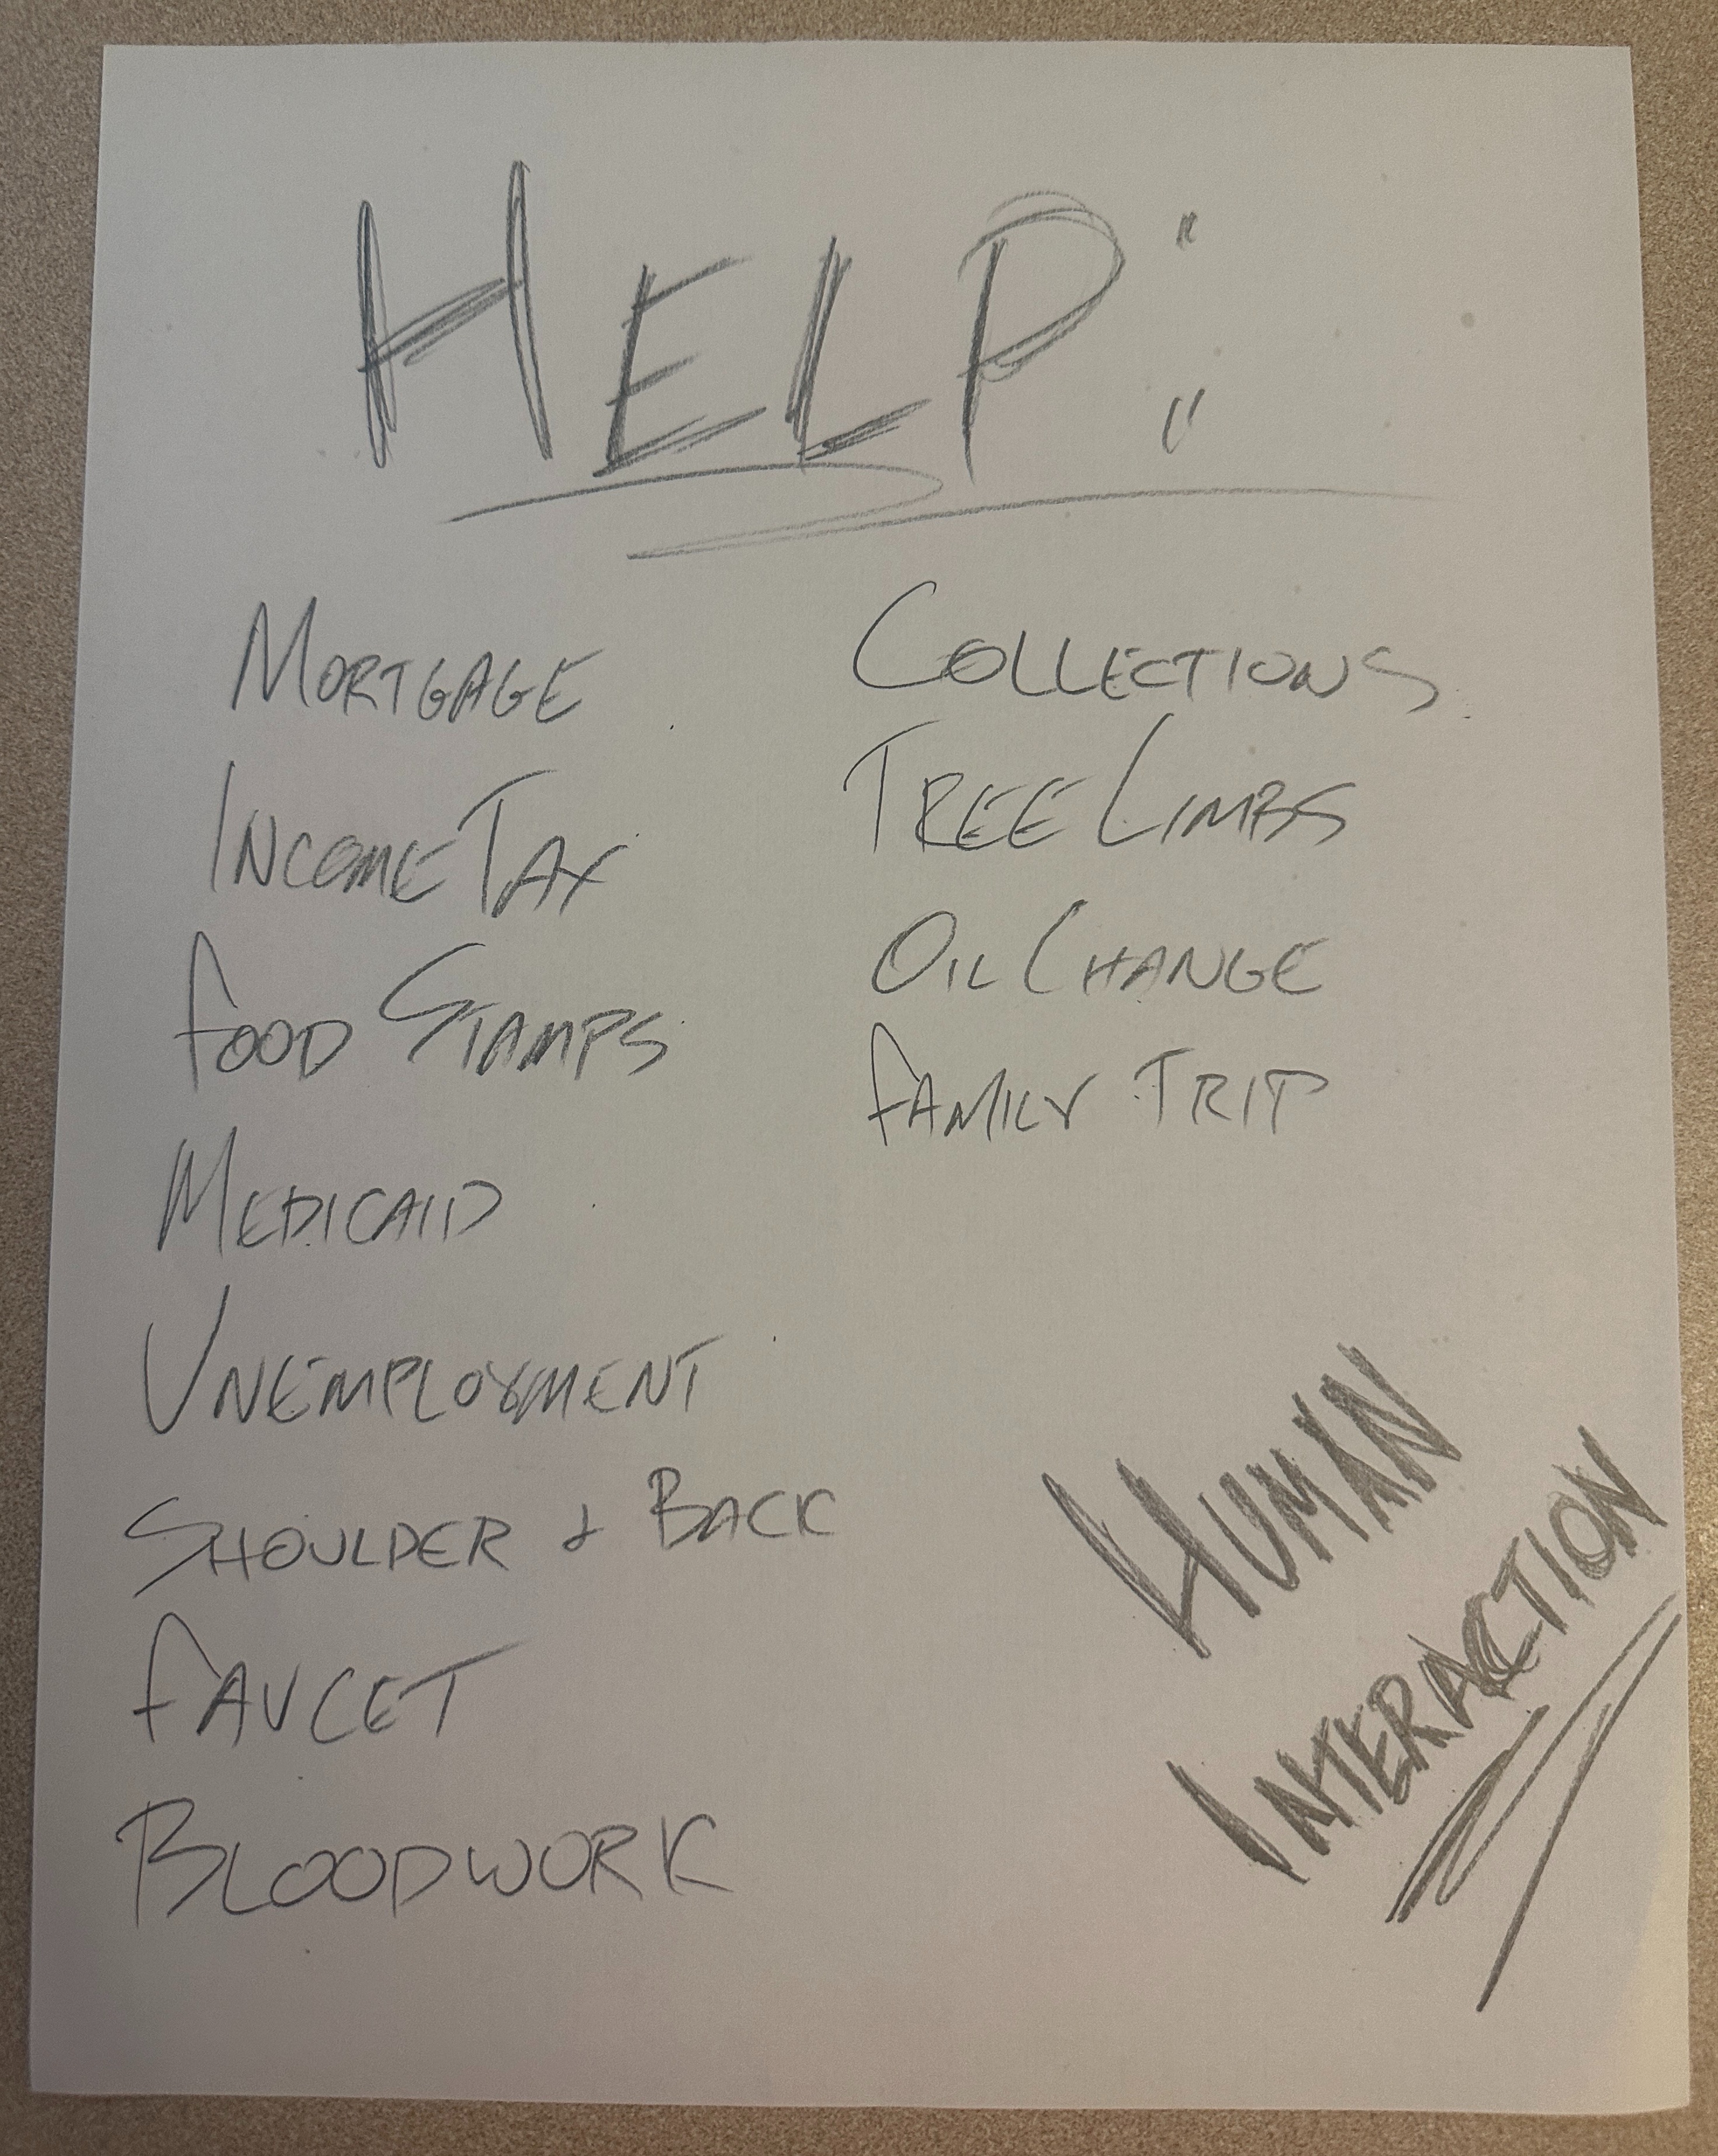 HELP:
MORTGAGE
INCOME TAX
FOOD STAMPS
MEDICAID
UNEMPLOYMENT
SHOULDER & BACK
FAUCET
BLOODWORK
COLLECTIONS
TREE LIMBS
OIL CHANGE
FAMILY TRIP
HUMAN
INTERACTION